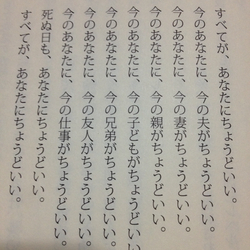 すべてが、あなたにちょうどいい。
今のあなたに、今の夫がちょうどいい。
今のあなたに、今の妻がちょうどいい。
今のあなたに、今の親がちょうどいい。
今のあなたに、今の子どもがちょうどいい。
今のあなたに、今の兄弟がちょうどいい
今のあなたに、今の友人がちょうどいい。
今のあなたに、今の仕事がちょうどいい。
死ぬ日も、あなたにちょうどいい。
すべてが、あなたにちょうどいい。